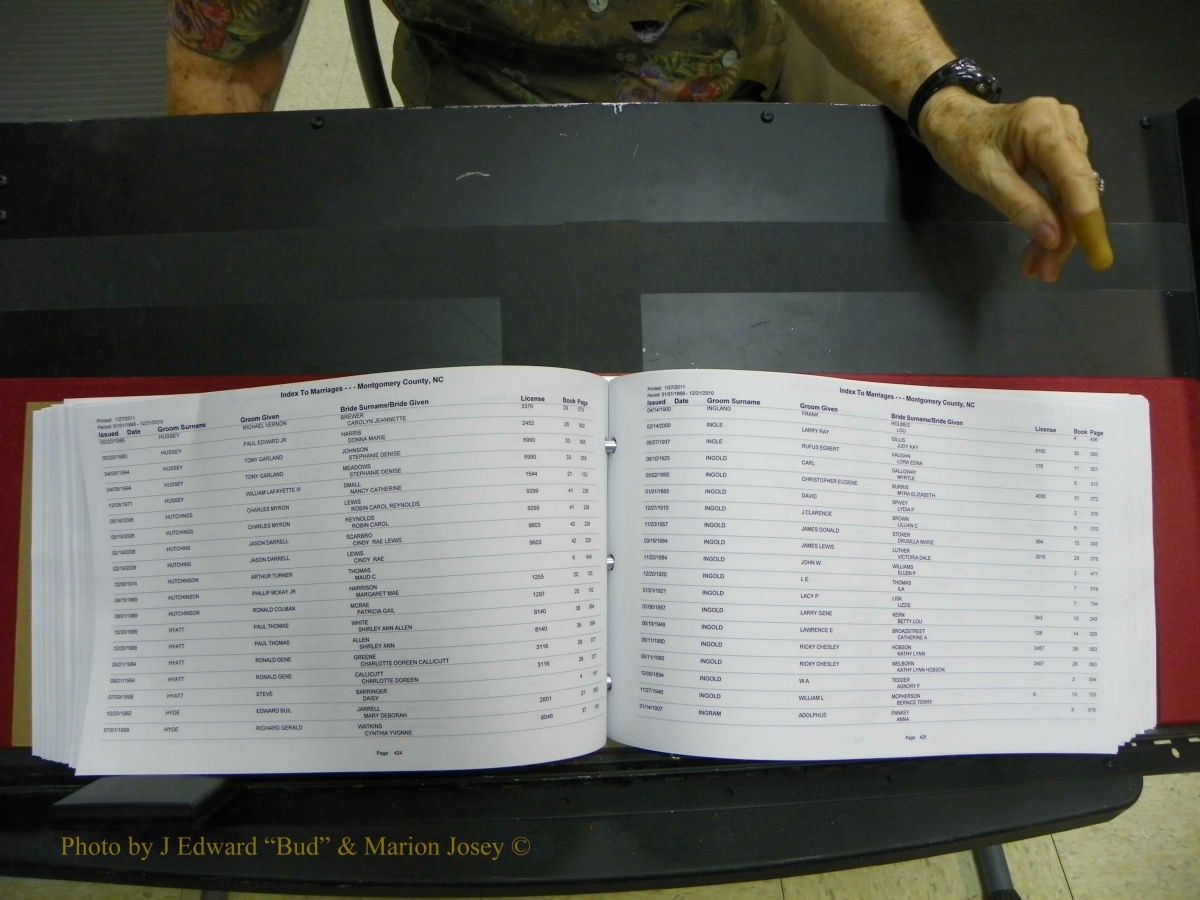 Index To Marriages - - - Montgomery County, NC
Printed: 1/27/2011
Period: 01/01/1868 - 12/31/2010
Issued Date Groom Surname Groom Given Bride Surname/Bride Given License Book Page
HUSSEY MICHAEL VERNON BREWER 3376 20
CAROLYN JEANNETTE
05/29/1980 HUSSEY PAUL EDWARD JR HARRIS 2452
DONNA MARIE
04/08/1994 HUSSEY TONY GARLAND JOHNSON 6990 33
STEPHANIE DENISE
04/08/1994 HUSSEY TONY GARLAND MEADOWS 6990 33
STEPHANIE DENISE
12/08/1971 HUSSEY WILLIAM LAFAYETTE III SMALL 1544 21
NANCY CATHERINE
05/16/2006 HUTCHINGS CHARLES MYRON LEWIS 9299 41
ROBIN CAROL REYNOLDS
05/16/2006 HUTCHINGS CHARLES MYRON REYNOLDS 9299 41
ROBIN CAROL
02/19/2008 HUTCHINS JASON DARRELL SCARBRO 9603 42
CINDY RAE LEWIS
02/19/2008 HUTCHINS JASON DARRELL LEWIS 9603 42
CINDY RAE
HUTCHINSON ARTHUR TURNER THOMAS
MAUD C
HUTCHINSON PHILLIP MCKAY JR HARRISON 1255 20
MARGARET MAE
HUTCHINSON RONALD COLMAN MCRAE 1297 20
PATRICIA GAIL
12/30/1999 HYATT PAUL THOMAS WHITE 8140 38
SHIRLEY ANN ALLEN
12/30/1999 HYATT PAUL THOMAS ALLEN 8140 38
SHIRLEY ANN
09/21/1984 HYATT RONALD GENE GREENE 3116 28 077
CHARLOTTE DOREEN CALLICUTT
09/21/1984 HYATT RONALD GENE CALLICUTT 3116 28 077
CHARLOTTE DOREEN
HYATT STEVE BARRINGER 4
DAISY
10/20/1982 HYDE EDWARD BUIL JARRELL 2801 27
MARY DEBORAH
07/01/1999 HYDE RICHARD GERALD WATKINS 8046 37
CYNTHIA YVONNE
Page 424
Index To Marriages - - - Montgomery County, NC
Printed: 1/27/2011
Period: 01/01/1868 - 12/31/2010
Issued Date Groom Surname Groom Given Bride Surname/Bride Given License Book Page
04/14/1900 INGLAND FRANK HOLMES 4
LOU
02/14/2000 INGLE LARRY RAY GILLIS 8160 38
JUDY KAY
INGLE RUFUS EGBERT VAUGHN 178 11
LORA EDNA
INGOLD CARL GALLOWAY
MYRTLE
05/02/1990 INGOLD CHRISTOPHER EUGENE BURRIS 4030 31
MYRA ELIZABETH
01/01/1883 INGOLD DAVID SPIVEY 2
LYDIA P
12/07/1910 INGOLD J CLARENCE BROWN
LILLIAN C
11/20/1957 INGOLD JAMES DONALD STOKER 364 15 242
DRUSILLA MARIE
03/16/1984 INGOLD JAMES LEWIS LUTHER 3016 28
VICTORIA DALE
11/22/1884 INGOLD JOHN W WILLIAMS 2 471
ELLEN P
12/20/1920 INGOLD L E THOMAS 7
ILA
01/21/1921 INGOLD LACY P LISK 7 754
LIZZIE
07/06/1957 INGOLD LARRY GENE KERN 343 15
BETTY LOU
INGOLD LAWRENCE E BROADSTREET 128 14
CATHERINE A
INGOLD RICKY CHESLEY HOBSON 2457 26
KATHY LYNN
INGOLD RICKY CHESLEY WELBORN 2457 26
KATHY LYNN HOBSON
12/08/1894 INGOLD W A TEDDER 3
AGNORY F
11/27/1946 INGOLD WILLIAM L MCPHERSON 13
BERNICE TERRY
01/14/1907 INGRAM ADOLPHUS PANKEY
ANNA
Page 425
Photo by J Edward “Bud” & Marion Josey ©